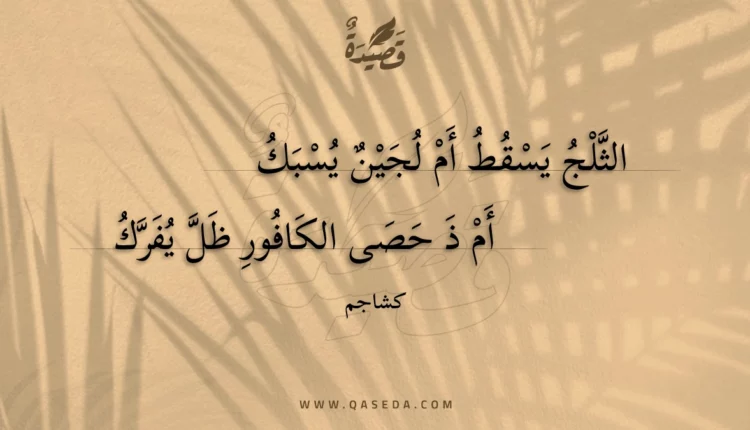 قَصِيدَةٌ
الثَّلْجُ يَسْقُطُ أَمْ لُجَيْنٌ يُسْبَكُ
أَمْ ذَ حَصَى الكَافُورِ ظَلَّ يُفَرَّكُ
كشاجم
WWW.QASEDA.COM